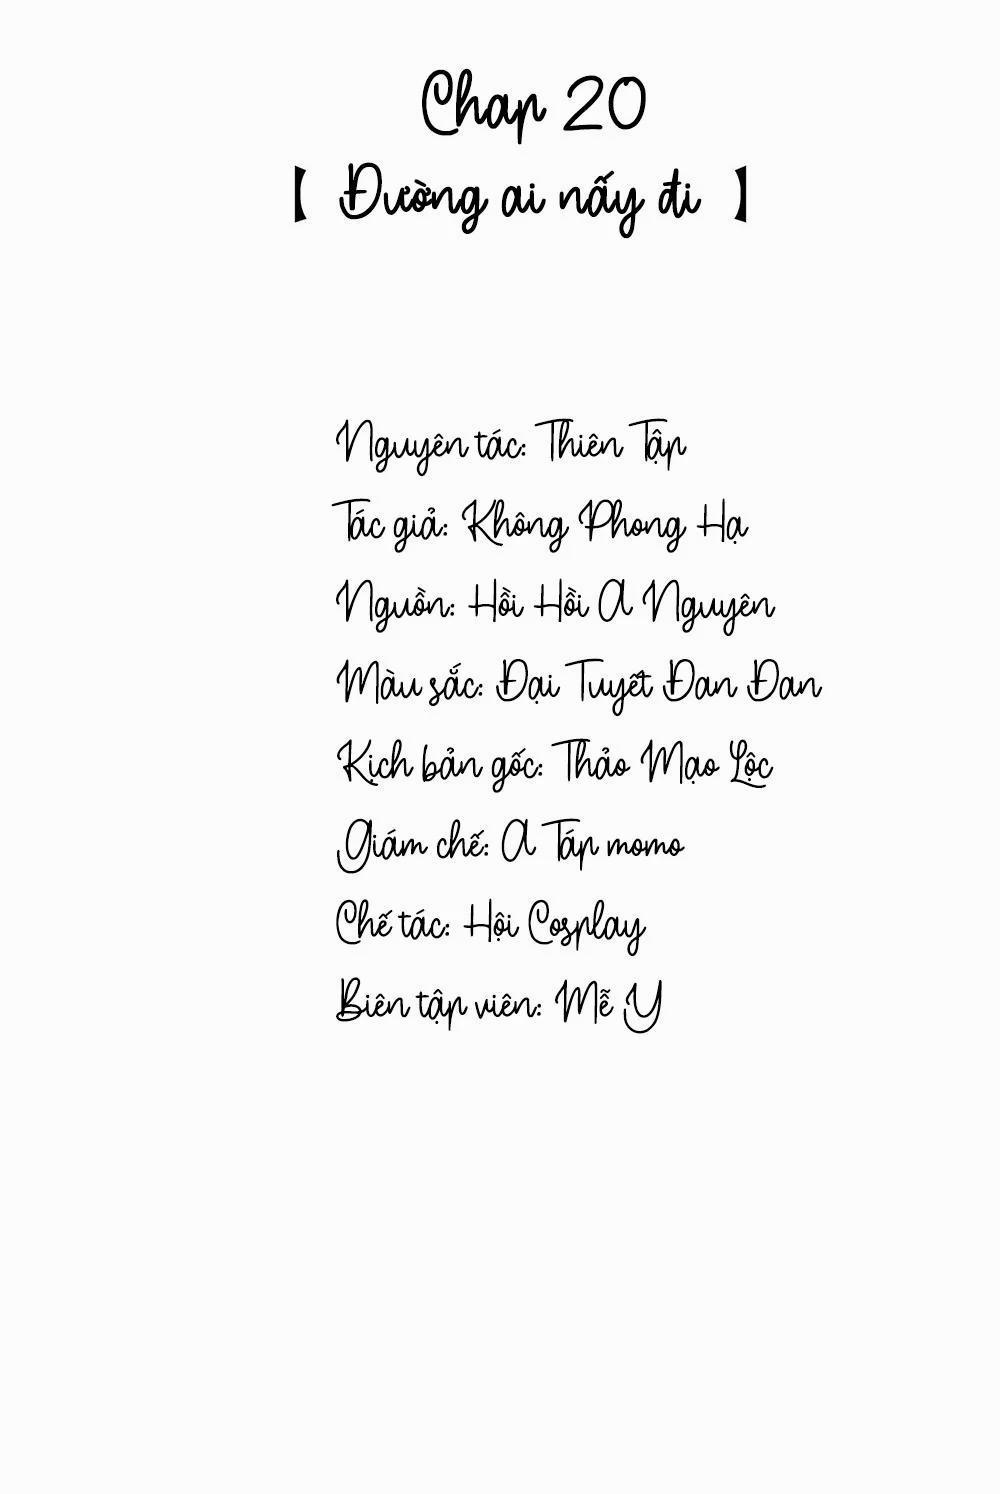 Chap 20
【 Đường ai nấy đi 】
Nguyên tác: Thiên Tập
Tác giả: Không Phong Hạ
Nguồn: Hồi Hồi A Nguyên
Màu sắc: Đại Tuyết Đan Đan
Kịch bản gốc: Thảo Mạo Lộc
Giám chế: A Táp momo
Chế tác: Hội Cosplay
Biên tập viên: Mễ Y